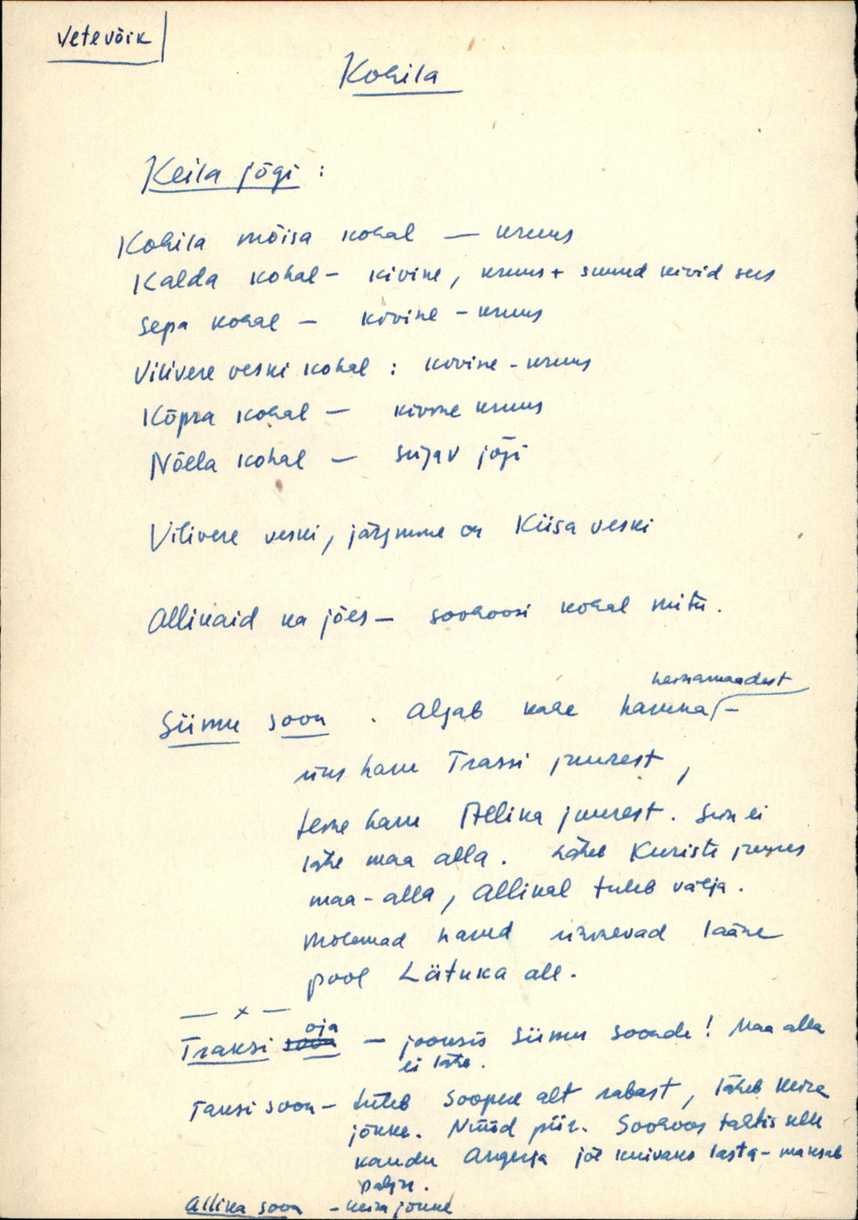 Vetevõrk
Kohila
Keila jõgi :
Kohila mõisa kohal — kruus
Kalda kohal - kivine, kruus + suured kivid sees
Sepa kohal — kivine - kruus
Vilivere veski kohal : kivine - kruus
Kõpra kohal — kivine kruus
Nõella kohal — sügav jõgi
Vilivere veski, järgmine on Kiisa veski
Allikaid ka jões — soohoosi kohal mitu.
heinamaadest
Siimu soon . Algab kahe haruna -
üks haru Trassi juurest,
teine haru Allika juurest. Siin ei
lähe maa alla. Läheb Kuristi juures
maa-alla, Allikal tuleb välja.
Mõlemad harud lääne
pool Lätuka all.
— x —
oja
Traksi soon — jooksis Siimu soonde! Maa alla
ei lähe.
Taksi soon - tuleb Soopere alt rabast, läheb Keila
jõkke. Nüüd piir. Soohoos tahtis selle
kaudu Angerja jõe kuivaks lasta - maksab
palju.
Allika soon - Keila jõkke